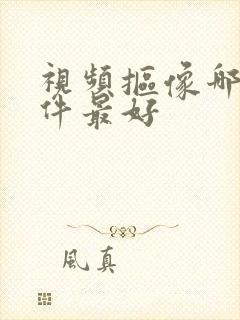 視頻摳像哪
件最好
風真